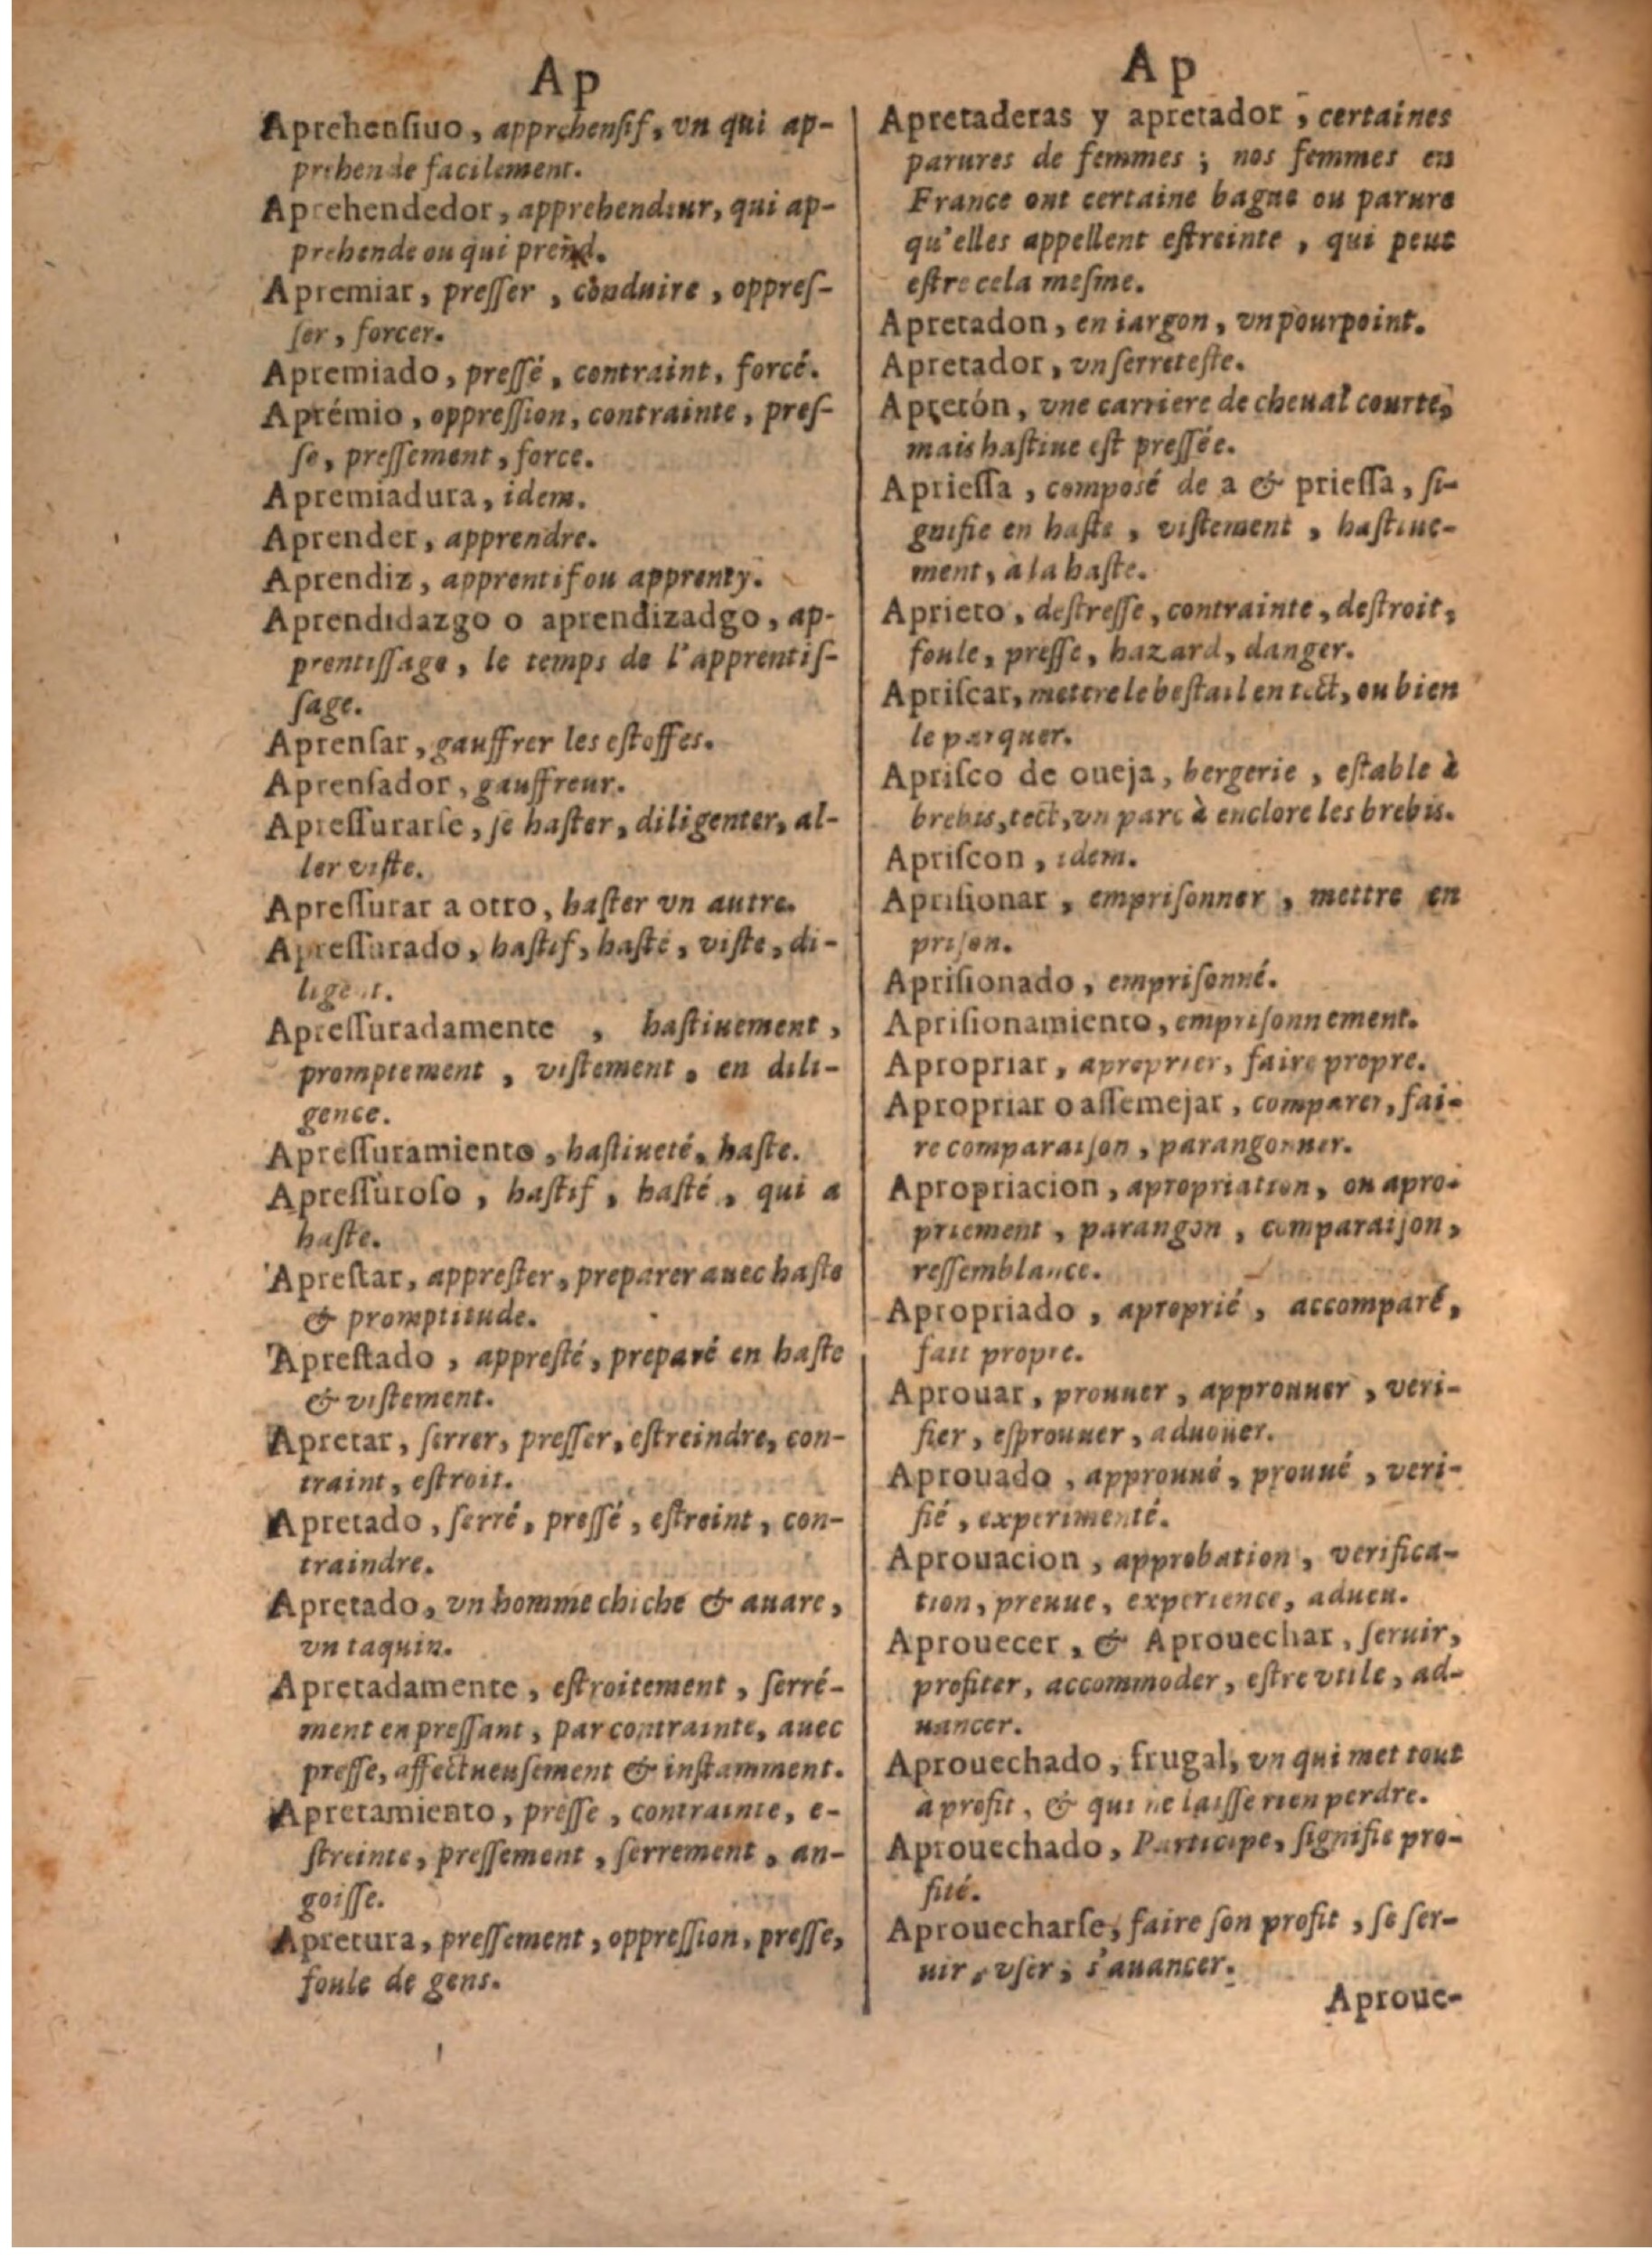 Ap
Aprehenſiuo, apprehenſif, vn qui ap-
prehende facilement.
Aprehendedor, apprehendeur, qui ap-
prehende ou qui prend.
Apremiar, preſſer, conduire, oppreſ-
ſer, forcer.
Apremiado, preſſé, contraint, forcé.
Aprémio, oppreſſion, contrainte, preſ-
ſe, preſſement, force.
Apremiadura, idem.
Aprender, apprendre.
Aprendiz, apprentif ou apprenty.
Aprendidazgo o aprendizadgo, ap-
prentiſſage, le temps de l'apprentiſ-
ſage.
Aprenſar, gauffrer les eſtoffes.
Aprenſador, gauffreur.
Apreſſurarſe, ſe haſter, diligenter, al-
ler viſte.
Apreſſurar a otro, haſter vn autre.
Apreſſurado, haſtif, haſté, viſte, di-
ligent.
Apreſſuradamente, haſtiuement,
promptement, viſtement, en dili-
gence.
Apreſſuramiento, haſtiueté, haſte.
Apreſſuroſo, haſtif, haſté, qui a
haſte.
Apreſtar, appreſter, preparer auec haſte
& promptitude.
Apreſtado, appreſté, preparé en haſte
& viſtement.
Apretar, ſerrer, preſſer, eſtreindre, con-
traint, eſtroit.
Apretado, ſerré, preſſé, eſtreint, con-
traindre.
Apretado, vn homme chiche & auare,
vn taquin.
Apretadamente, eſtroitement, ſerré-
ment en preſſant, par contrainte, auec
preſſe, affectueuſement & inſtamment.
Apretamiento, preſſe, contrainte, e-
ſtreinte, preſſement, ſerrement, an-
goiſſe.
Apretura, preſſement, oppreſſion, preſſe,
foule de gens.
Ap
Apretaderas y apretador, certaines
parures de femmes; nos femmes en
France ont certaine bague ou parure
qu'elles appellent eſtreinte, qui peut
eſtre cela meſme.
Apretadon, en iargon, vn pourpoint.
Apretador, vn ſerreteſte.
Apretón, vne carriere de cheual courte,
mais haſtiue eſt preſſée.
Aprieſſa, composé de a & prieſſa, ſi-
gnifie en haſte, viſtement, haſtiue-
ment, à la haſte.
Aprieto, deſtreſſe, contrainte, deſtroit,
foule, preſſe, hazard, danger.
Apriſcar, mettre le beſtail en tect, ou bien
le parquer.
Apriſco de oueja, bergerie, eſtable à
brebis, tect, vn parc à enclore les brebis.
Apriſcon, idem.
Apriſionar, empriſonner, mettre en
priſon.
Apriſionado, empriſonné.
Apriſionamiento, empriſonnement.
Apropriar, aproprier, faire propre.
Apropriar o aſſemejar, comparer, fai-
re comparaiſon, parangonner.
Apropriacion, apropriation, ou apro-
priement, parangon, comparaiſon,
reſſemblance.
Apropriado, aproprié, accomparé,
fait propre.
Aprouar, prouuer, approuuer, veri-
fier, eſprouuer, aduoüer.
Aprouado, approuué, prouué, veri-
fié, experimenté.
Aprouacion, approbation, verifica-
tion, preuue, experience, adueu.
Aprouecer, & Aprouechar, ſeruir,
profiter, accommoder, eſtre vtile, ad-
uancer.
Aprouechado, frugal, vn qui met tout
à profit, & qui ne laiſſe rien perdre.
Aprouechado, Participe, ſignifie pro-
fité.
Aprouecharſe, faire ſon profit, ſe ſer-
uir, vſer, s'auancer.
Aproue-